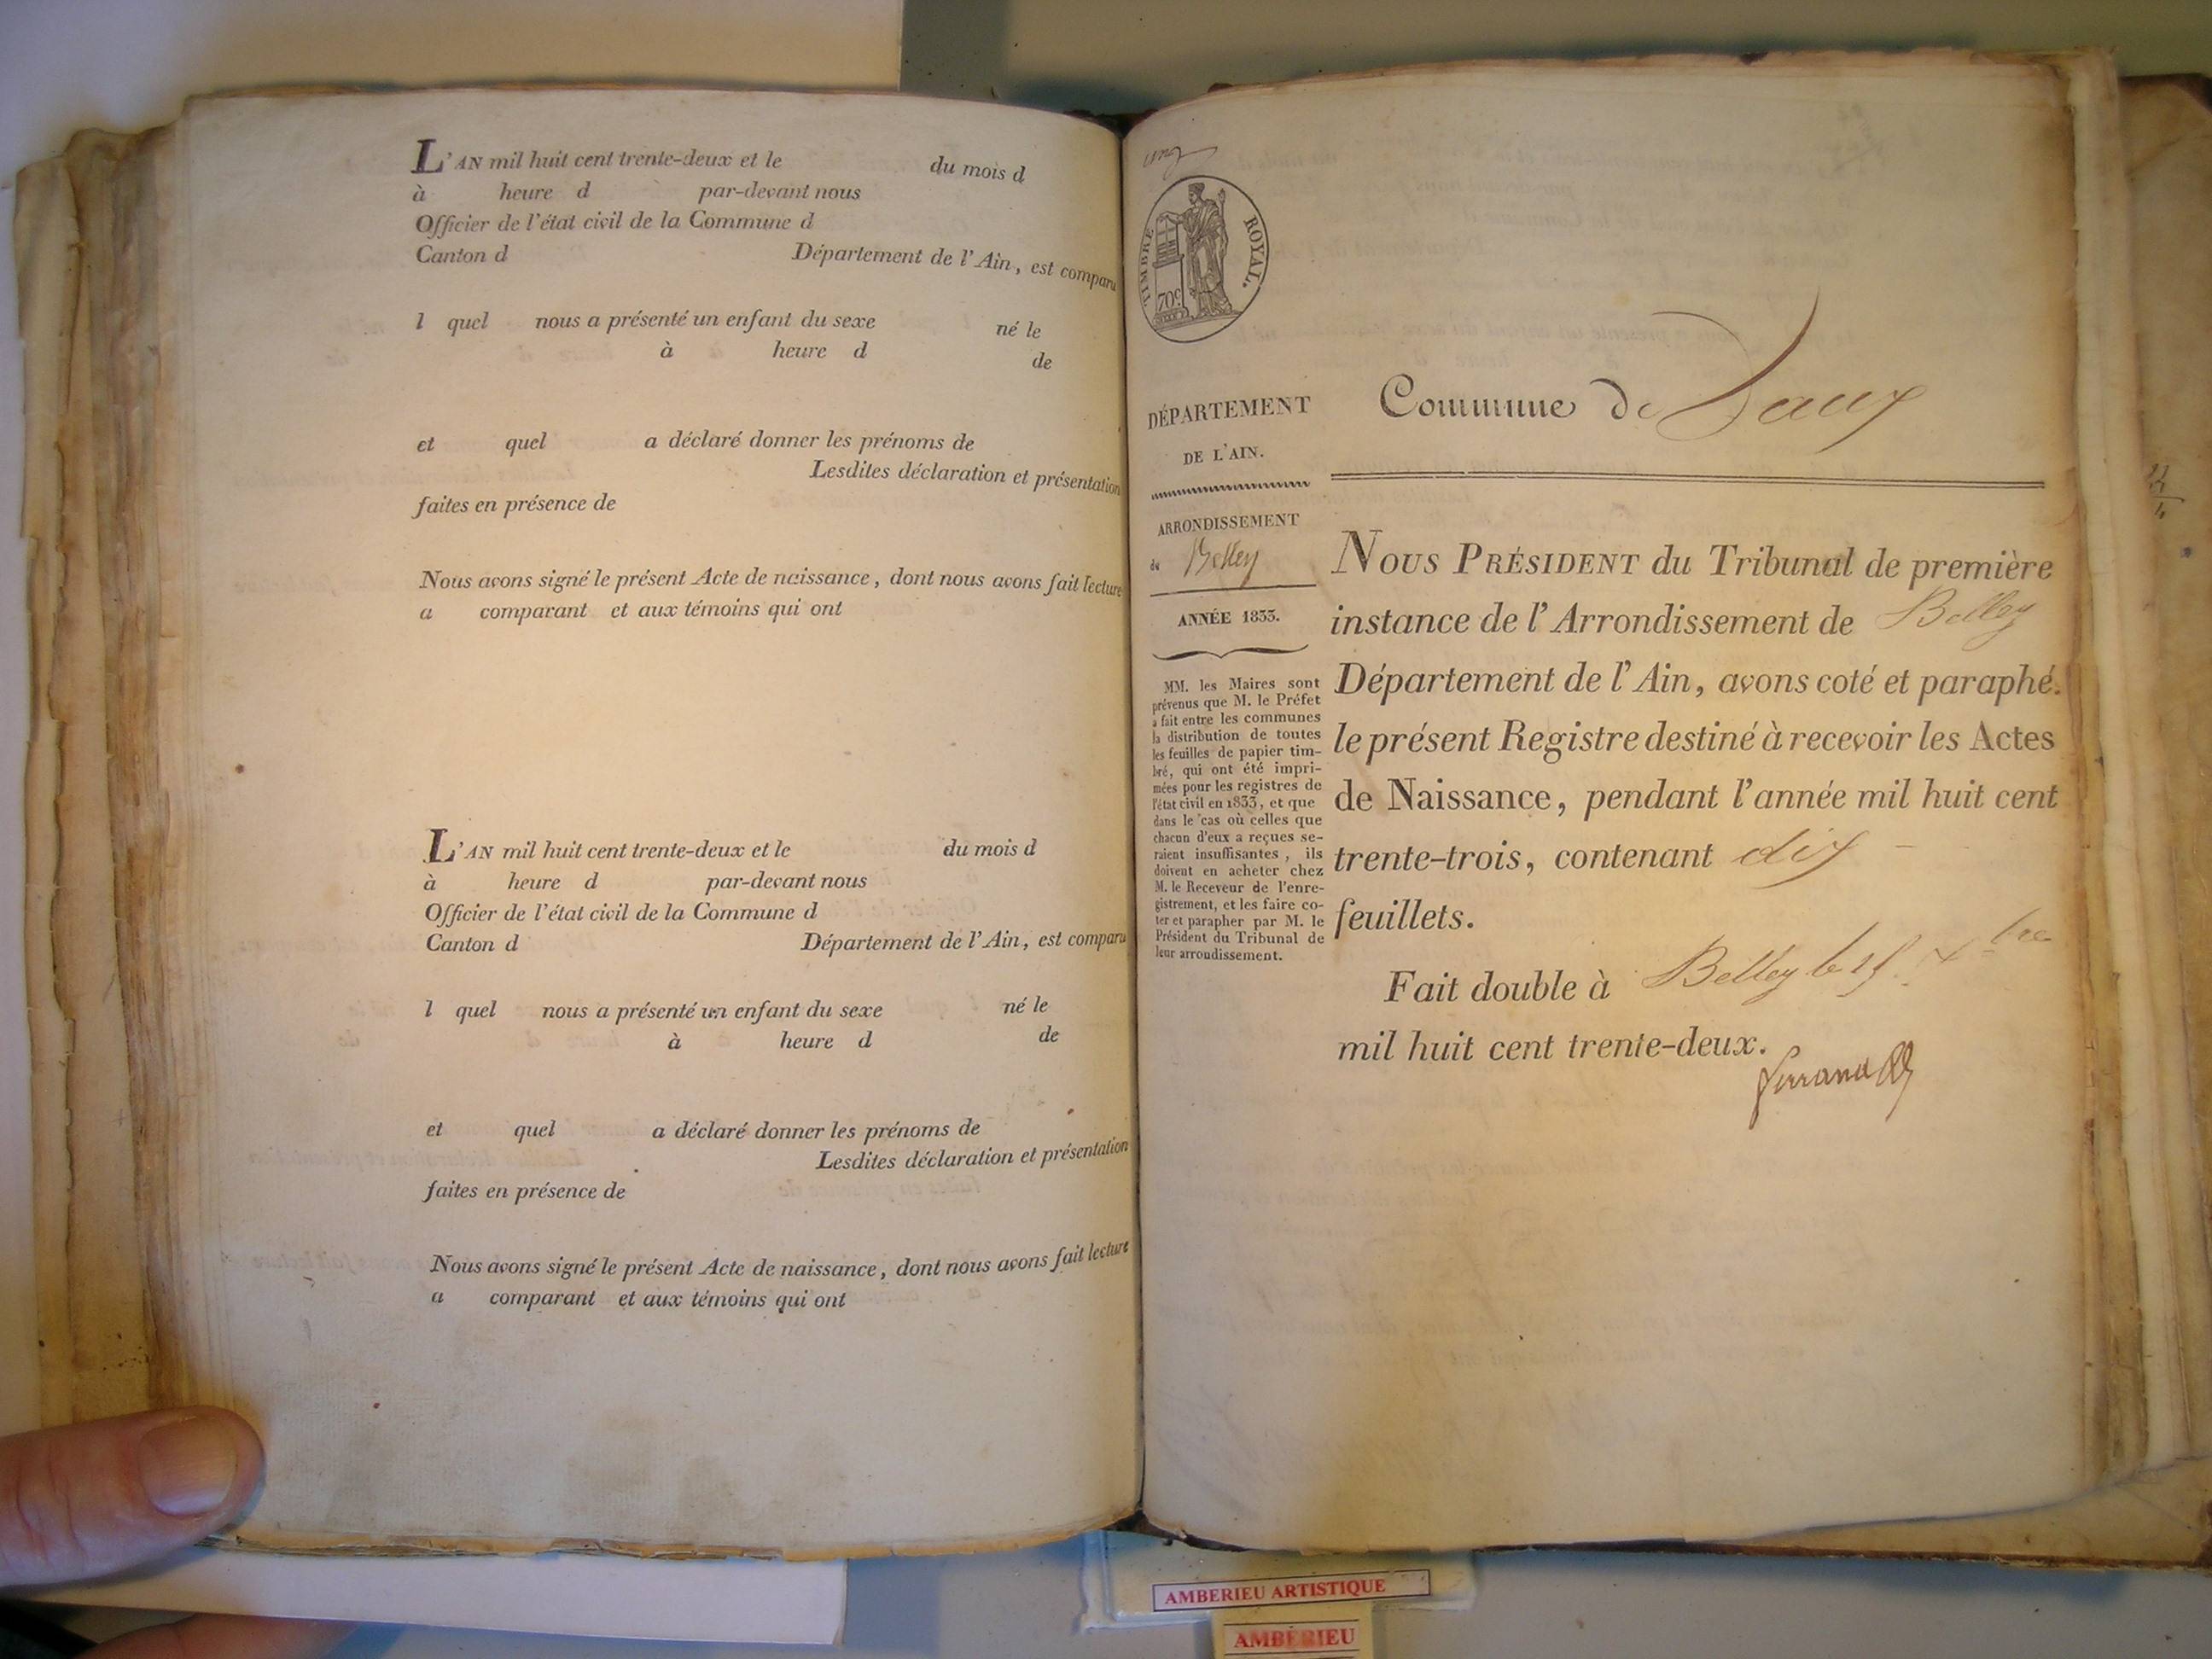 L'AN mil huit cent trente-deux et le du mois d
à heure d par-devant nous
Officier de l'état civil de la Commune d
Canton d Département de l'Ain, est comparu
l quel nous a présenté un enfant du sexe né le
à heure d de
et quel a déclaré donner les prénoms de
Lesdites déclaration et présentation
faites en présence de
Nous avons signé le présent Acte de naissance, dont nous avons fait lecture
a comparant et aux témoins qui ont
L'AN mil huit cent trente-deux et le du mois d
à heure d par-devant nous
Officier de l'état civil de la Commune d
Canton d Département de l'Ain, est comparu
l quel nous a présenté un enfant du sexe né le
à heure d de
et quel a déclaré donner les prénoms de
Lesdites déclaration et présentation
faites en présence de
Nous avons signé le présent Acte de naissance, dont nous avons fait lecture
a comparant et aux témoins qui ont
TIMBRE ROYAL.
70c
DÉPARTEMENT
DE L'AIN.
ARRONDISSEMENT
de Belley
ANNÉE 1833.
MM. les Maires sont
prévenus que M. le Préfet
a fait entre les communes
la distribution de toutes
les feuilles de papier tim-
bré, qui ont été impri-
mées pour les registres de
l'état civil en 1833, et que
dans le cas où celles que
chacun d'eux a reçues se-
raient insuffisantes, ils
doivent en acheter chez
M. le Receveur de l'enre-
gistrement, et les faire co-
ter et parapher par M. le
Président du Tribunal de
leur arrondissement.
Commune de Vaux
NOUS PRÉSIDENT du Tribunal de première
instance de l'Arrondissement de Belley
Département de l'Ain, avons coté et paraphé
le présent Registre destiné à recevoir les Actes
de Naissance, pendant l'année mil huit cent
trente-trois, contenant dix
feuillets.
Fait double à Belley le 15 Xbre
mil huit cent trente-deux.
AMBERIEU ARTISTIQUE
AMBÉRIEU